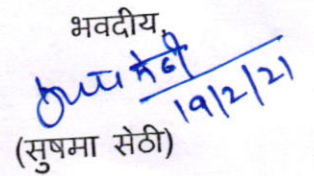 भवदीय,
19/2/21
(सुषमा सेठी)